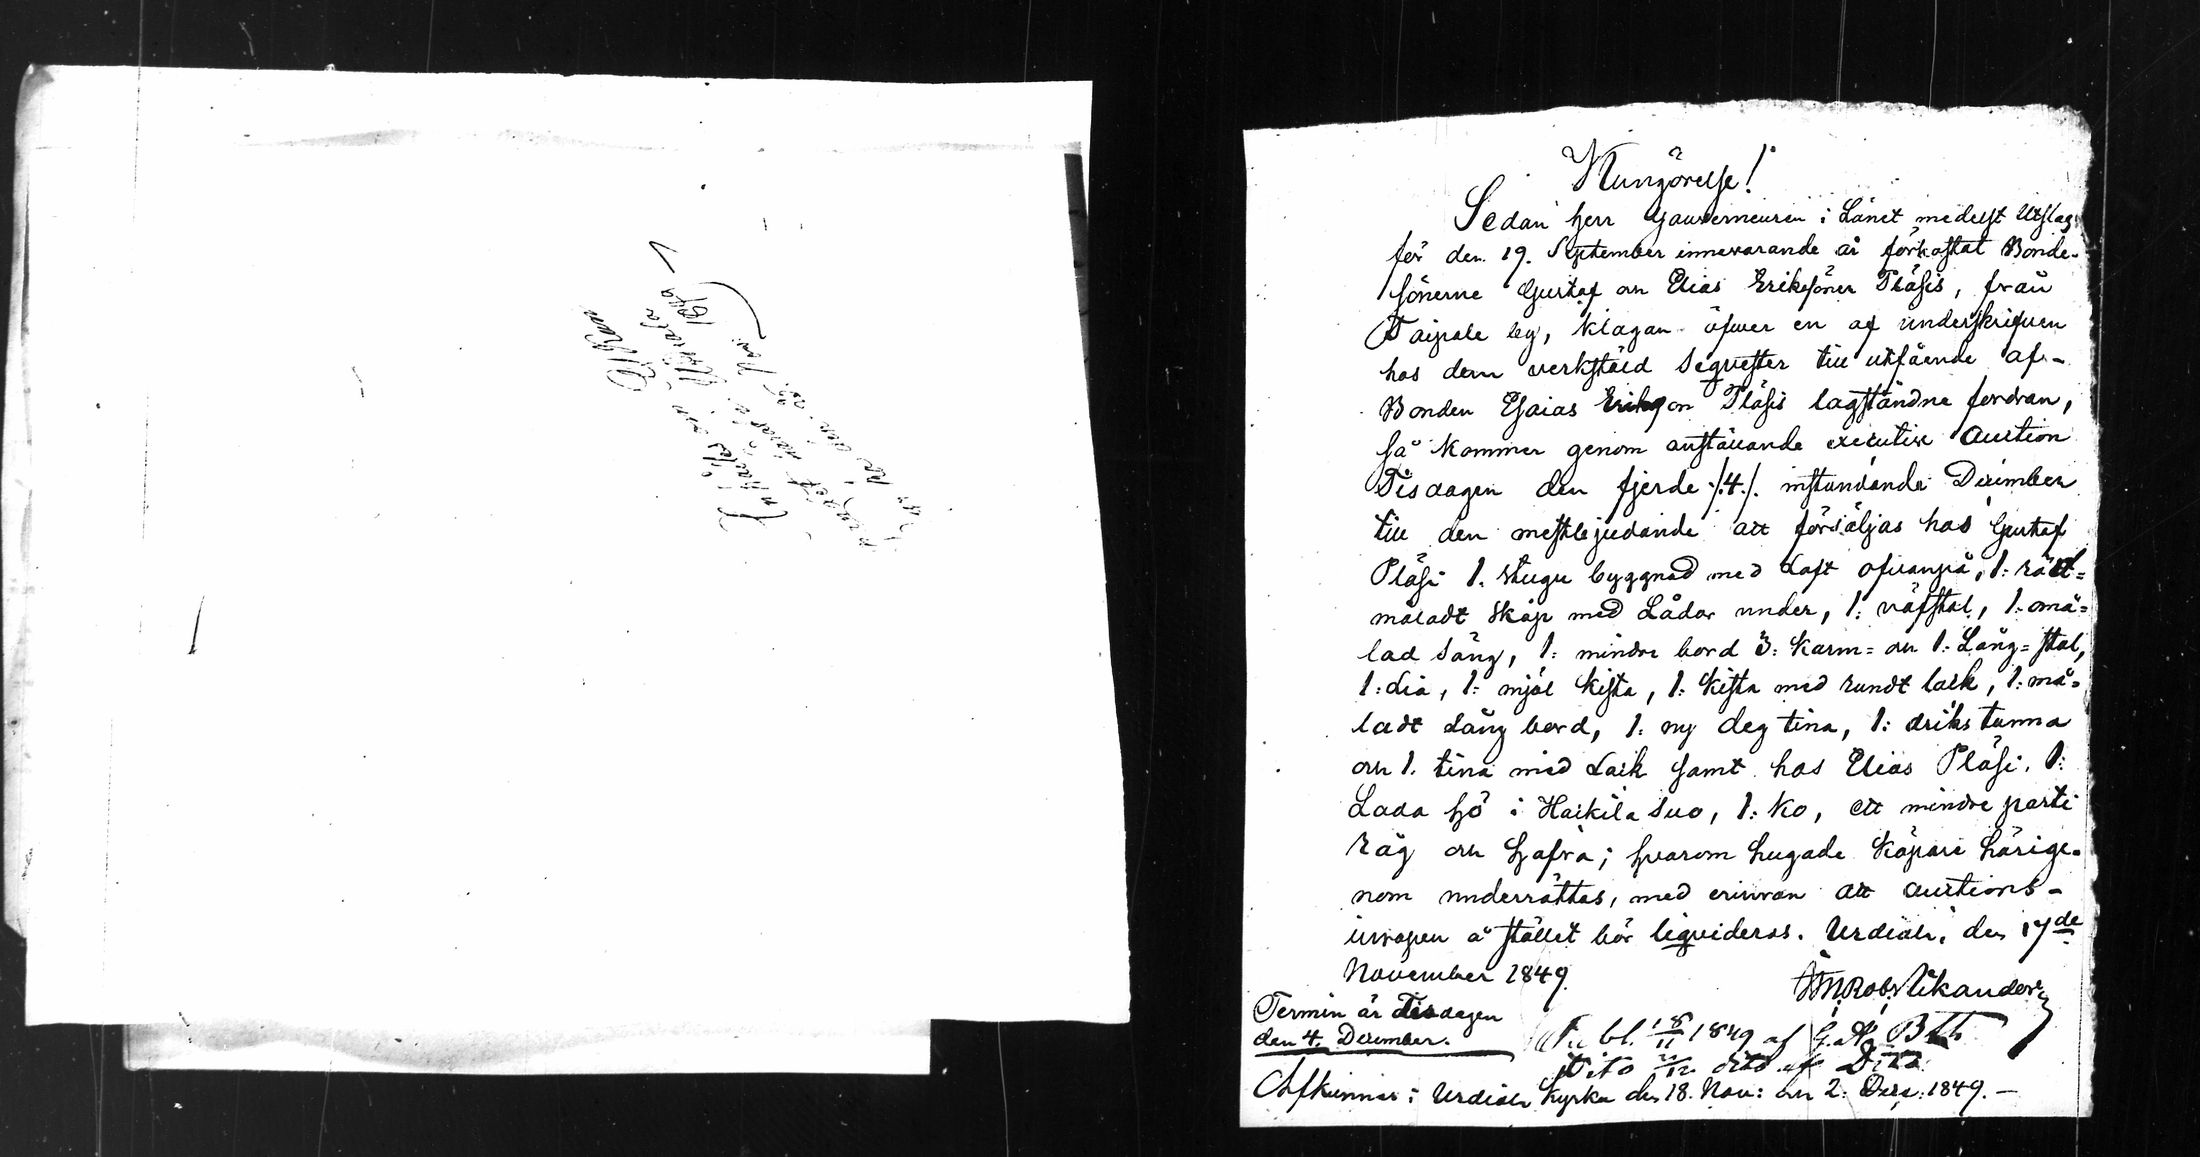 Kungörelse!
Sedan herr Gouverneuren i Länet medelst Utslag
för den 19. September innevarande år förkastat Bonde-
sönerne Gustaf och Elias Eriksöner Pläsis, från
Taipale by, klagan öfwer en af underskrifven
hos dem verkstäld Seqvester till utfående af
Bonden Esaias Erikson Pläsis lagståndne fordran,
så kommer genom anställande executive Auction
Tisdagen den fjerde ·/.4./. instundande December
till den mestbjudande att försäljas hos Gustaf
Pläsi 1. stugu byggnad med Loft ofvanpå, 1: rödt=
måladt skåp med Lådor under, 1: väfstol, 1: omå=
lad säng, 1: mindre bord 3: karm= och 1: Lång= stol,
1: Lia, 1: mjöl kista, 1: kista med rundt lock, 1: må=
ladt Lång bord, 1. ny deg tina, 1: driks tunna
och 1. tina med Lock samt hos Elias Pläsi, 1:
Lada hö i Haikila suo, 1: Ko, ett mindre parti
Råg och hafra; hvarom hugade köpare härige-
nom underrättas, med erinran att auctions-
inropen å stället bör liqvideras. Urdiala, den 17de
November 1849
Rob. Wikander
Termin är Tisdagen
den 4. December.
Publ. 18/11 1849 af
Dito dito af Dito
Afkunnas i Urdiala Kyrka den 18. Nov: och 2. Dec: 1849. —